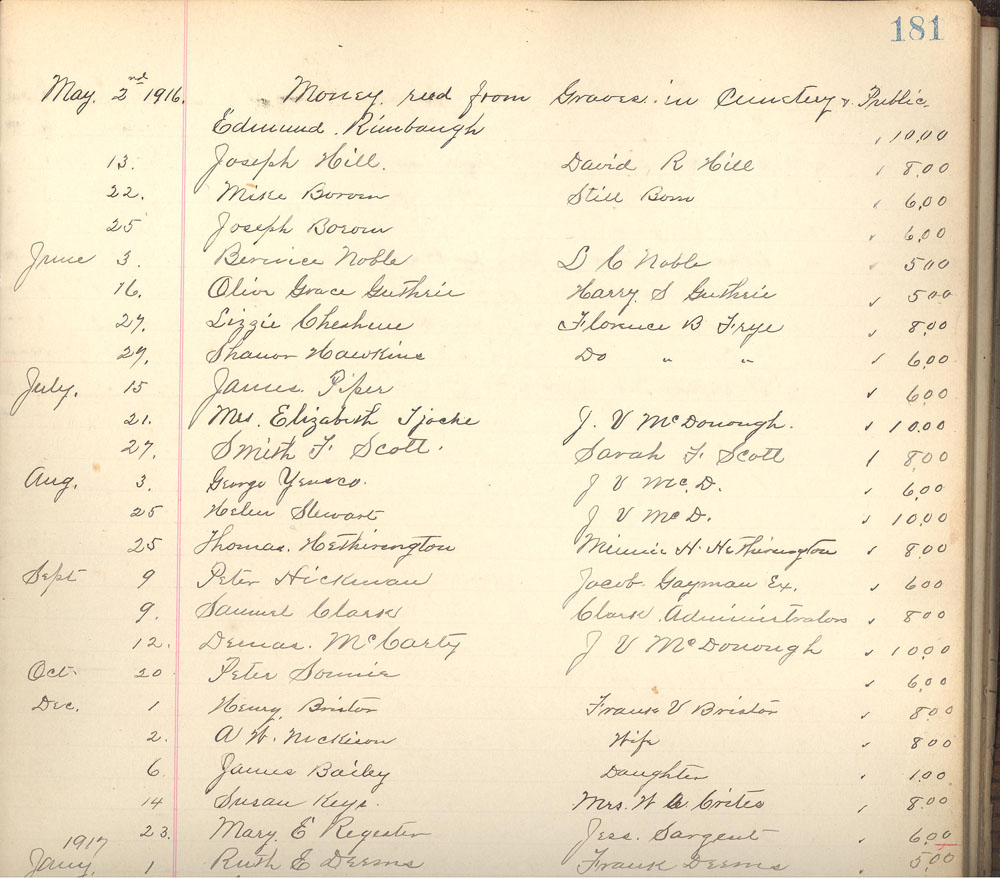 181
May. 2nd 1916. Money recd from Graves in Cemetery & Public
Edmund. Rimbaugh 10.00
13. Joseph Hill. David R Hill 8.00
22. Mike Borom Still Born 6.00
25 Joseph Borom 6.00
June 3. Bernice Noble L C Noble 5.00
16. Olive Grace Guthrie Harry S Guthrie 5.00
27. Lizzie Cheshire Florence B Frye 8.00
29. Hawkins Do " " 6.00
July. 15 James. Piper 6.00
21. Mrs. Elizabeth J. V McDonough. 10.00
27. Smith F. Scott. Sarah F Scott 8.00
Aug. 3. George J V McD. 6.00
25 Helen Stewart J V McD. 10.00
25 Thomas. Hetherington Minnie H. Hetherington 8.00
Sept 9 Peter Hickman Jacob Gayman Ex. 6.00
9. Samuel Clark Clark Administrators 8.00
12. Demas. McCarty J V McDonough 10.00
Oct. 20 Peter 6.00
Dec. 1 Henry Bristor Frank V Bristor 8.00
2. A. W. Nickison Wife 8.00
6. James Bailey Daughter 1.00
14 Susan Keys. Mrs. W Crites 8.00
23. Mary E Regester Jess. Sargent 6.00
1917
Jany. 1 Ruth E Deems Frank Deems 5.00